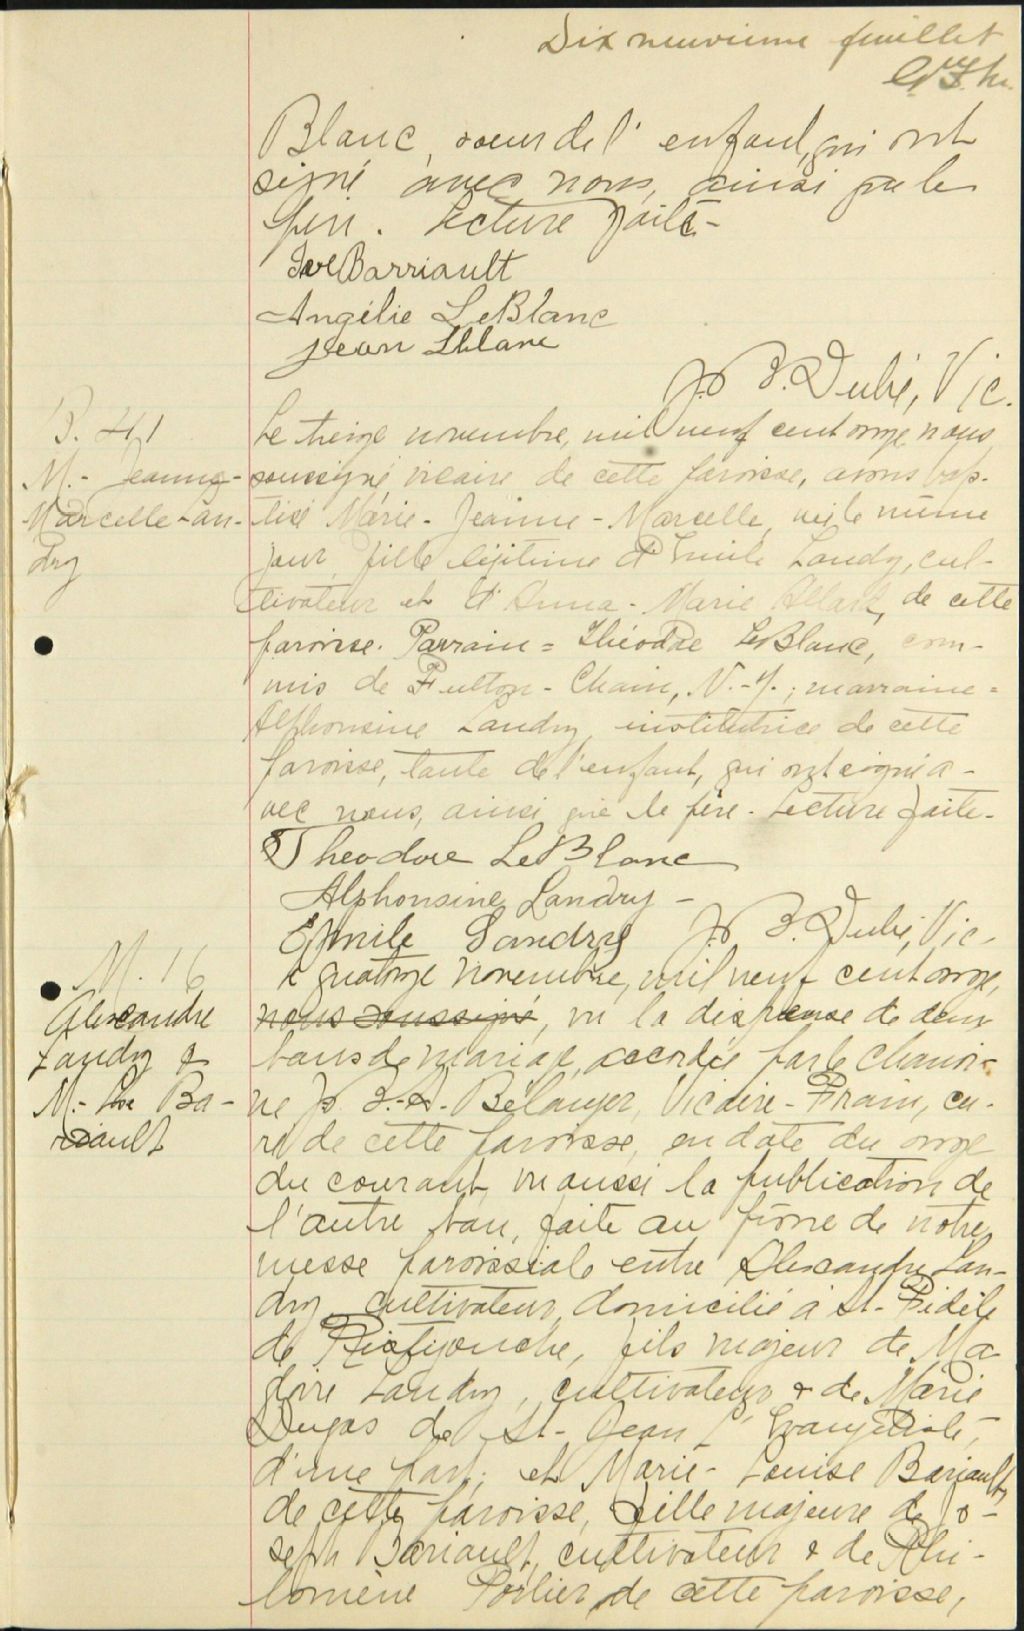 Dix neuvième feuillet
Blanc, soeur de l'enfant, qui ont
signé avec nous, ainsi que le
père. Lecture faite-
Jos Barriault
Angélie LeBlanc
Jean Leblanc
J. B. Dubé, Vic.
B. 41
M.- Jeanne-
Marcelle Lan-
dry
Le treize novembre, mil neuf cent onze, nous
soussigné vicaire de cette paroisse, avons bap-
tisé Marie-Jeanne-Marcelle, née le même
jour, fille légitime d'Emile Landry, cul-
tivateur et d'Anna-Marie Allard, de cette
paroisse. Parrain = Théodore LeBlanc, com-
mis de Fulton-Chain, N.-Y.; marraine =
Alphonsine Landry, institutrice de cette
paroisse, tante de l'enfant, qui ont signé a-
vec nous, ainsi que le père. Lecture faite.
Theodore LeBlanc
Alphonsine Landry -
Emile Landry J. B. Dubé, Vic.
M. 16
Alexandre
Landry &
M.- Lse Ba-
riault
Le quatorze novembre, mil neuf cent onze,
nous soussigné, vu la dispense de deux
bans de mariage, accordée par le chanoi-
ne J. B.-A. Bélanger, Vicaire-Forain, cu-
ré de cette paroisse, en date du onze
du courant, vu aussi la publication de
l'autre ban, faite au prône de notre
messe paroissiale entre Alexandre Lan-
dry, cultivateur, domicilié à St-Fidèle
de Ristigouche, fils majeur de Ma
gloire Landry, cultivateur & de Marie
Dugas de St-Jean L'Evangéliste,
d'une part; et Marie-Louise Bariault,
de cette paroisse, fille majeure de Jo-
seph Bariault, cultivateur & de Phi-
lomène Poirier, de cette paroisse,